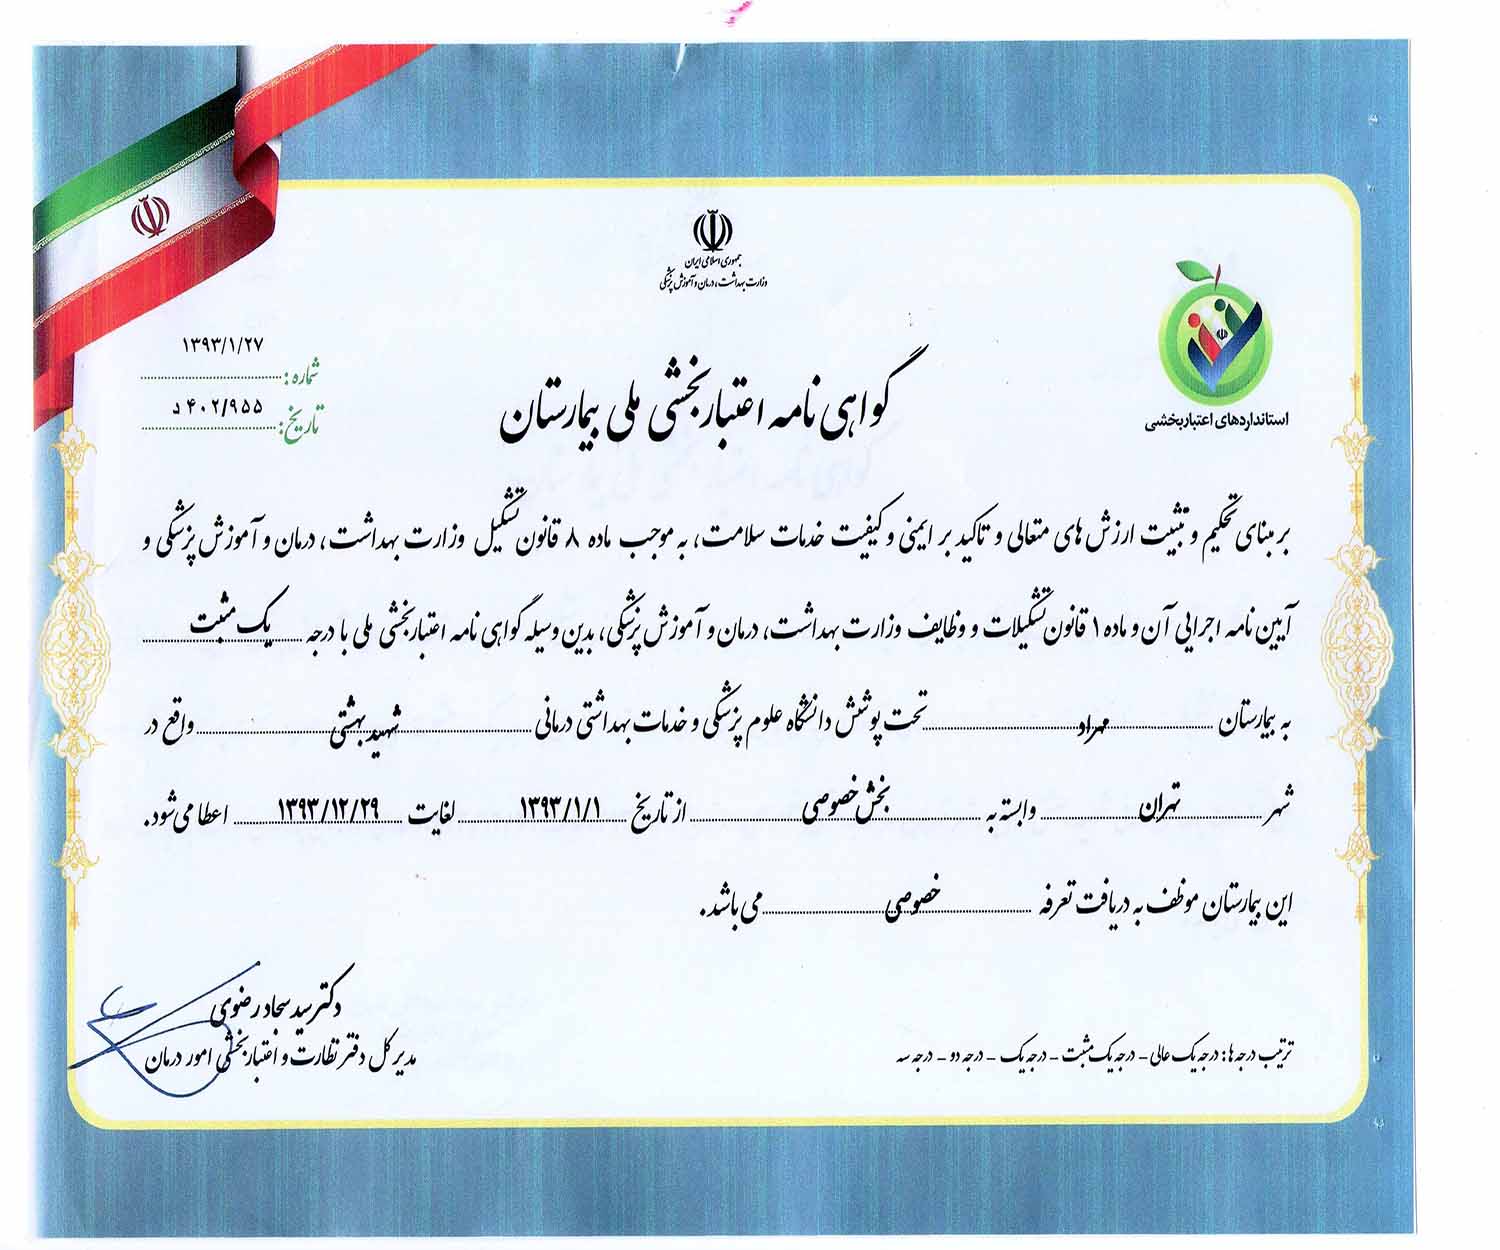 جمهوری اسلامی ایران
وزارت بهداشت، درمان و آموزش پزشکی
استانداردهای اعتباربخشی
۱۳۹۳/۱/۲۷
شماره:
۴۰۲/۹۵۵ د
تاریخ:
گواهی نامه اعتباربخشی ملی بیمارستان
بر مبنای تحکیم و تثبیت ارزش های متعالی و تاکید بر ایمنی و کیفیت خدمات سلامت، به موجب ماده ۸ قانون تشکیل وزارت بهداشت، درمان و آموزش پزشکی و
آیین نامه اجرایی آن و ماده ۱ قانون تشکیلات و وظایف وزارت بهداشت، درمان و آموزش پزشکی، بدین وسیله گواهی نامه اعتباربخشی ملی با درجه یک مثبت
به بیمارستان مهراد تحت پوشش دانشگاه علوم پزشکی و خدمات بهداشتی درمانی شهید بهشتی واقع در
شهر تهران وابسته به بخش خصوصی از تاریخ ۱۳۹۳/۱/۱ لغایت ۱۳۹۳/۱۲/۲۹ اعطا می شود.
این بیمارستان موظف به دریافت تعرفه خصوصی می باشد.
دکتر سید سجاد رضوی
مدیر کل دفتر نظارت و اعتباربخشی امور درمان
ترتیب درجه ها: درجه یک عالی - درجه یک مثبت - درجه یک - درجه دو - درجه سه